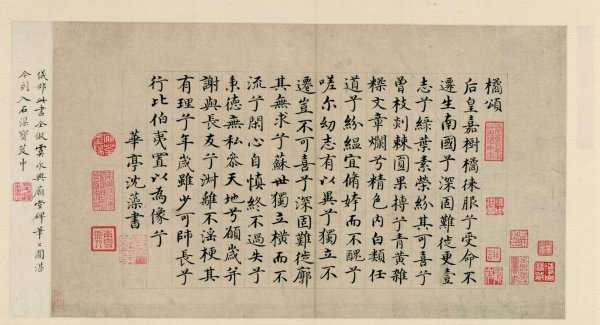 橘頌
后皇嘉樹橘徠服兮受命不
遷生南國兮深固難徙更壹
志兮綠葉素榮紛其可喜兮
曾枝剡棘圓果摶兮青黃雜
糅文章爛兮精色內白類任
道兮紛縕宜脩姱而不醜兮
嗟尔幼志有以異兮獨立不
遷豈不可喜兮深固難徙廓
其無求兮蘇世獨立橫而不
流兮閑心自慎終不過失兮
秉德無私參天地兮願歲并
謝與長友兮淑離不淫梗其
有理兮年歲雖少可師長兮
行比伯夷置以為像兮
華亭沈藻書
儀部此書全倣虞永興廟堂碑筆〻圓
今刻入寶笈中